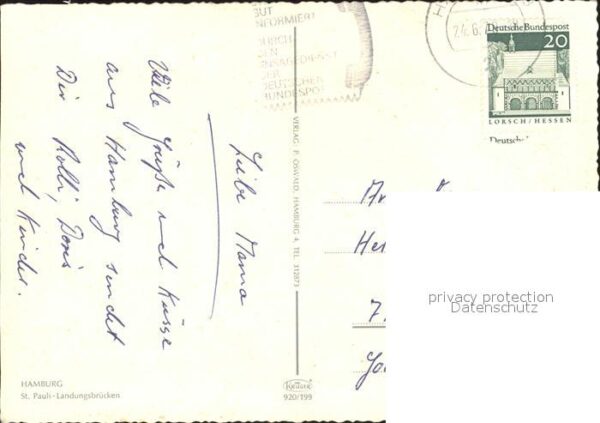 GUT
INFORMIERT
DURCH
DEN
ANSAGEDIENST
DER
DEUTSCHEN
BUNDESPOST
24.6.
Deutsche Bundespost
20
LORSCH/HESSEN
Deutsche
Liebe Mama
Viele Grüße und Küsse
aus Hamburg sendet
Dir Rolli, Doris
und Kinder.
VERLAG P. OSWALD, HAMBURG 4, TEL. 312873
7.
privacy protection
Datenschutz
HAMBURG
St. Pauli-Landungsbrücken
Krüger
920/199